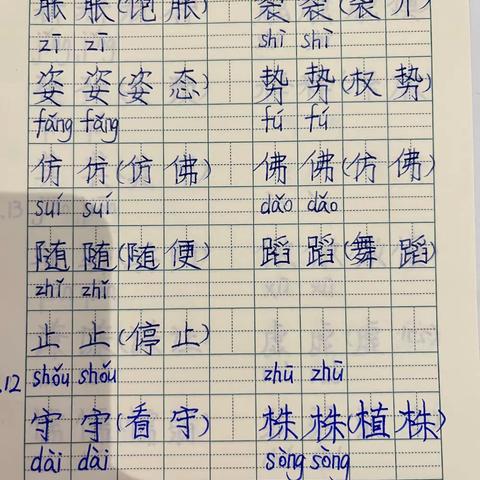 胀 胀(饱 胀) 裳 裳(裳
zī zī shì shì
姿 姿(姿 态) 势 势(权 势)
fǎng fǎng fú fú
仿 仿(仿 佛) 佛 佛(仿 佛)
suí suí dǎo dǎo
随 随(随 便) 蹈 蹈(舞 蹈)
zhǐ zhǐ
止 止(停 止)
.12 shǒu shǒu zhū zhū
守 守(看 守) 株 株(植 株)
dài dài sòng sòng